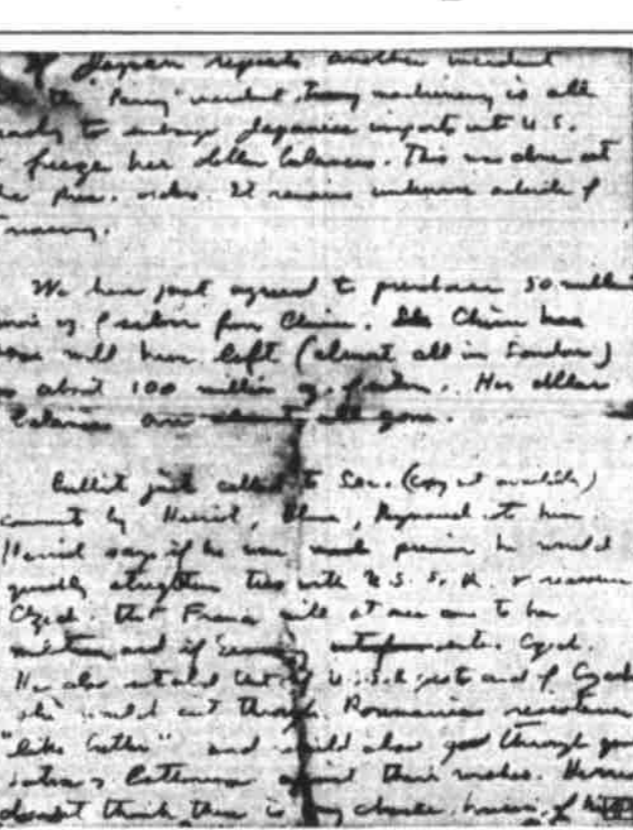 If Japan repeats another incident
the "Panay" incident, Treasy machinery is all
ready to embargo Japanese imports into U.S.
freeze her dollar balances. This was done at
the Pres. orders. It remains unknown outside of
Treasury.
We have just agreed to purchase 50 million
of silver from China. China has
will have left (almost all in London)
about 100 million oz. of silver. Her dollar
balances are almost all gone.
Bullit just cabled to Sec. (copy not available)
comments by Herriot, Blum, Reynaud to him
Herriot says if he were made premier he would
greatly strengthen ties with U.S.S.R. & reassure
Czech. that France will at once come to her
military aid if Germany Czech.
He also stated that if U.S.S.R. went to aid of Czech
she would cut through Roumanian resistance
"like butter" and would also go through
against their wishes.
doesn't think there is any chance